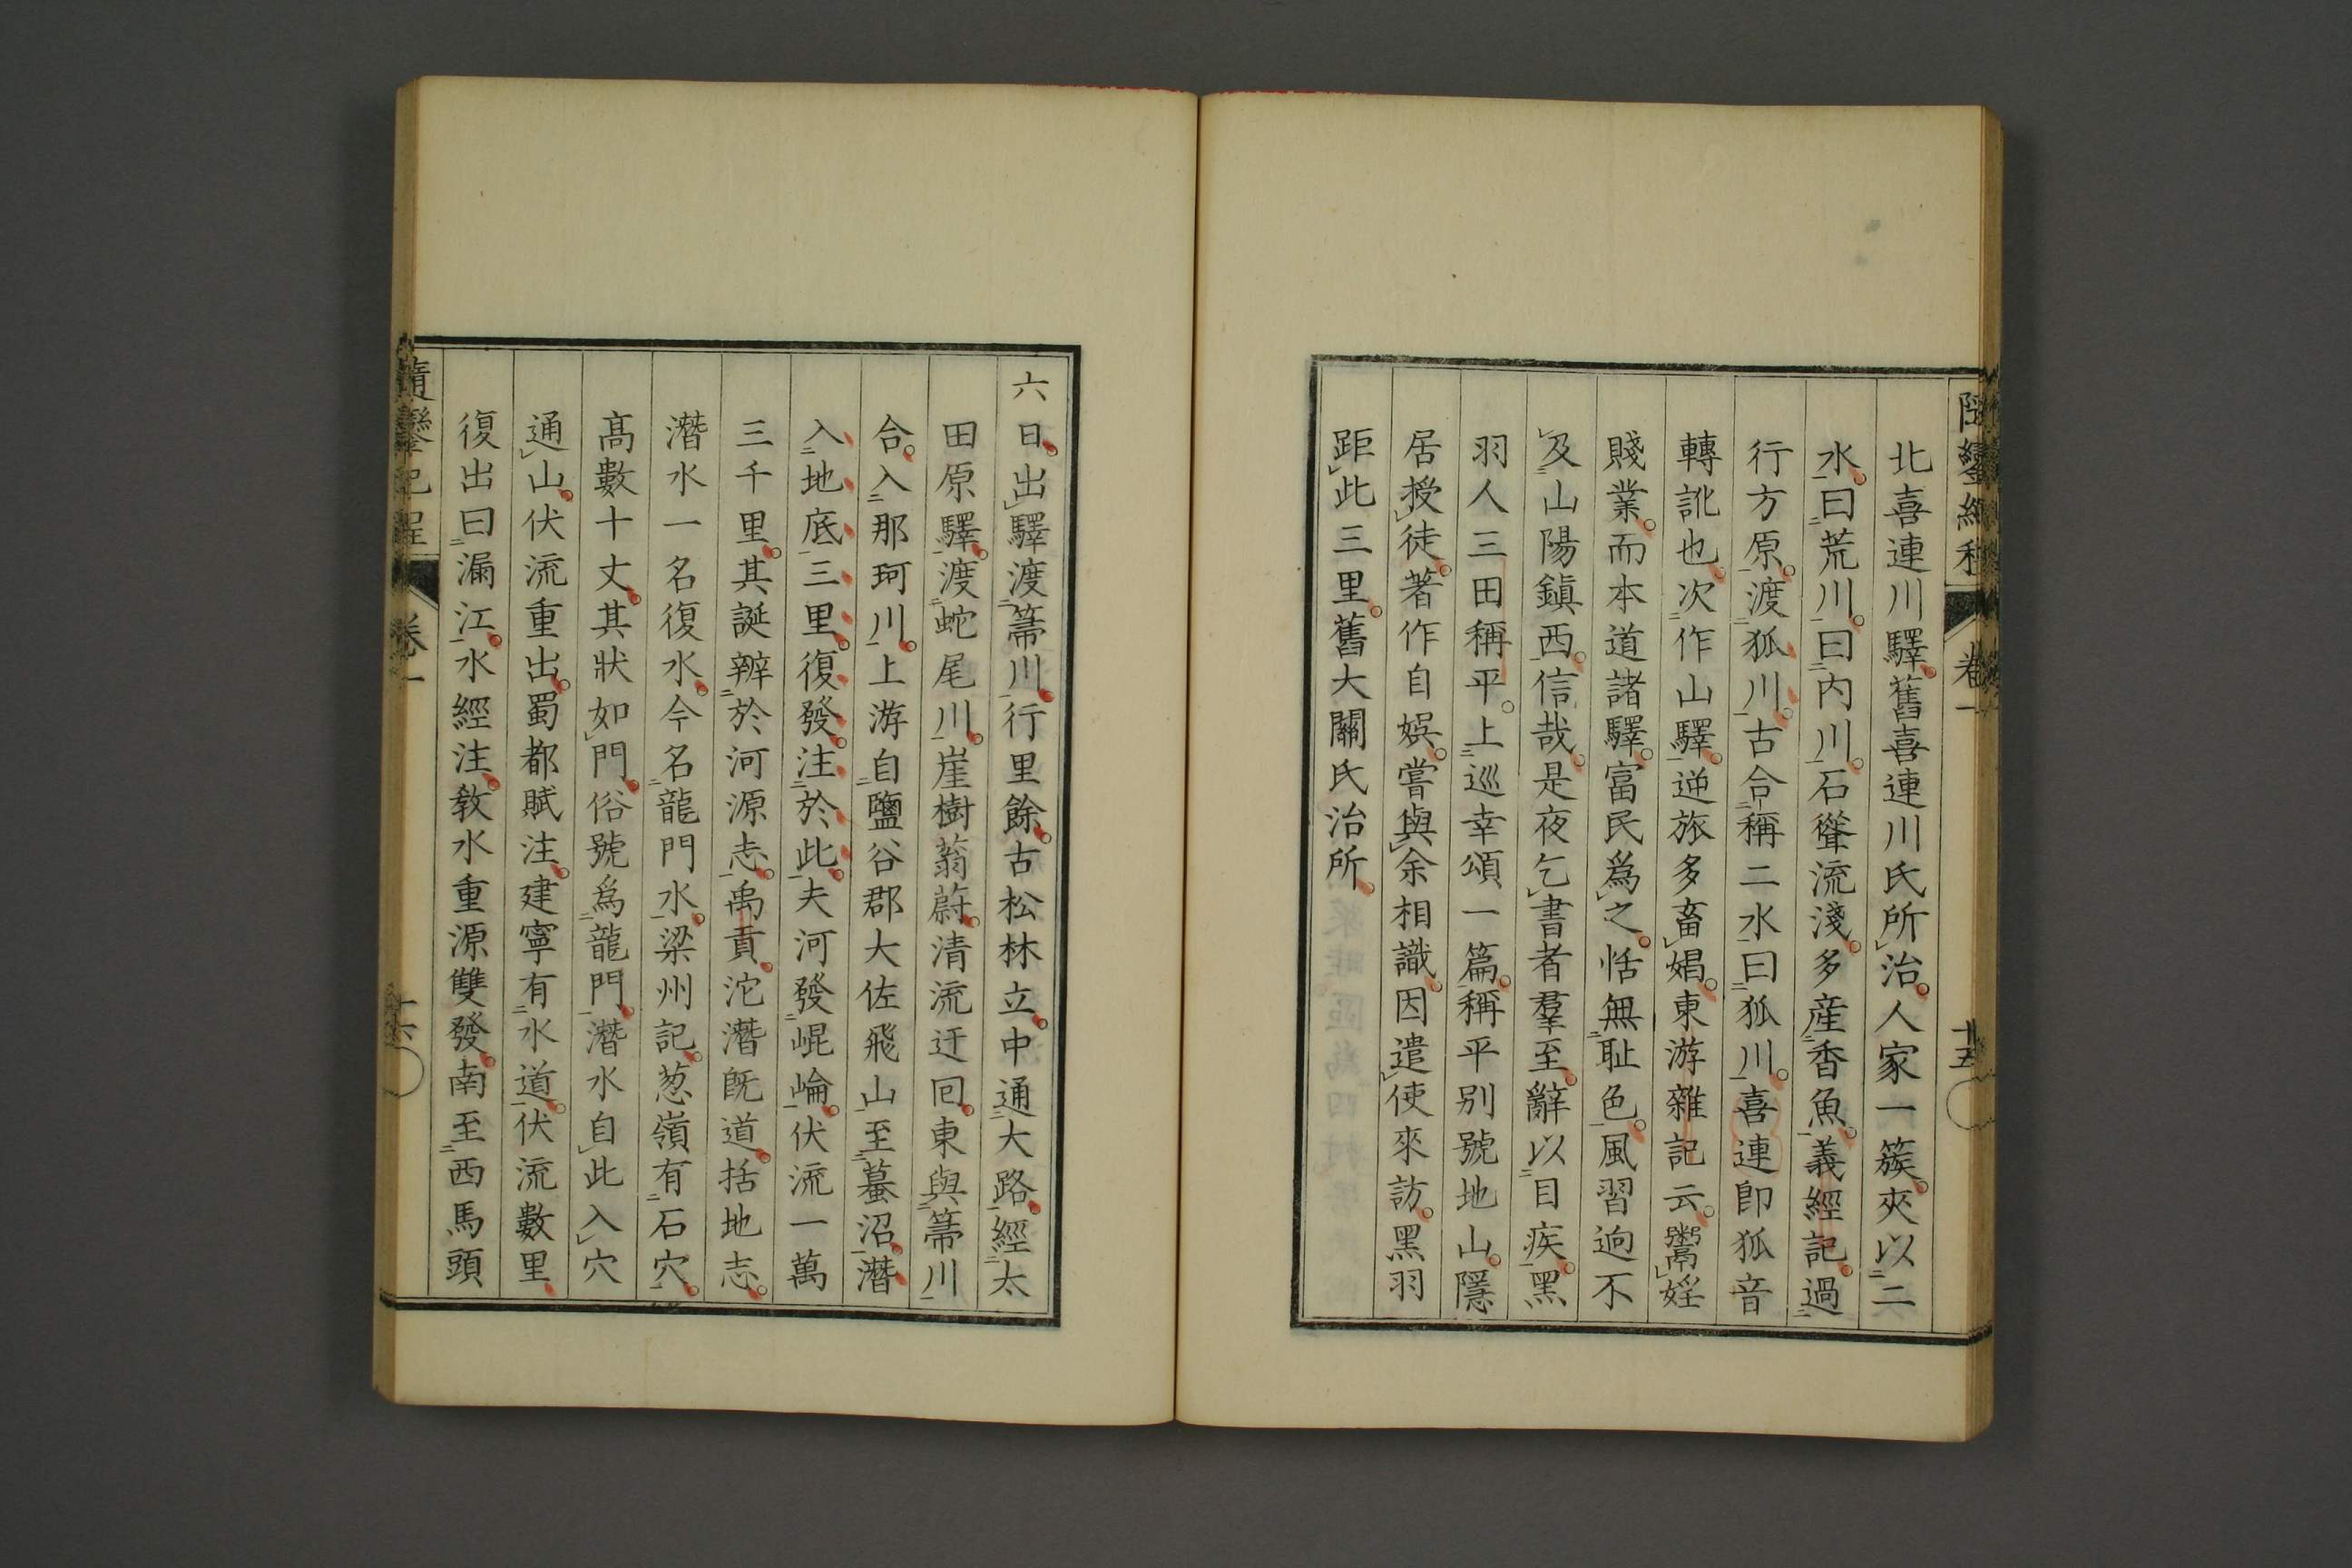 隨鑾紀程 卷一 十五
北喜連川驛舊喜連川氏所治人家一簇夾以二
水曰荒川曰内川石聳流淺多産香魚義經記過
行方原渡狐川古合稱二水曰狐川喜連卽狐音
轉訛也次作山驛逆旅多畜娼東游雜記云鬻婬
賤業而本道諸驛富民爲之恬無耻色風習逈不
及山陽鎭西信哉是夜乞書者羣至辭以目疾黑
羽人三田稱平上巡幸頌一篇稱平別號地山隱
居授徒著作自娯嘗與余相識因遣使來訪黑羽
距此三里舊大關氏治所
六日出驛渡箒川行里餘古松林立中通大路經太
田原驛渡蛇尾川崖樹蓊蔚清流迂囘東與箒川
合入那珂川上游自鹽谷郡大佐飛山至蟇沼潛
入地底三里復發注於此夫河發崐崘伏流一萬
三千里其誕辨於河源志禹貢沱潛旣道括地志
潛水一名復水今名龍門水梁州記葱嶺有石穴
高數十丈其狀如門俗號爲龍門潛水自此入穴
通山伏流重出蜀都賦注建寧有水道伏流數里
復出曰漏江水經注敎水重源雙發南至西馬頭
隨鑾紀程 卷一 十六